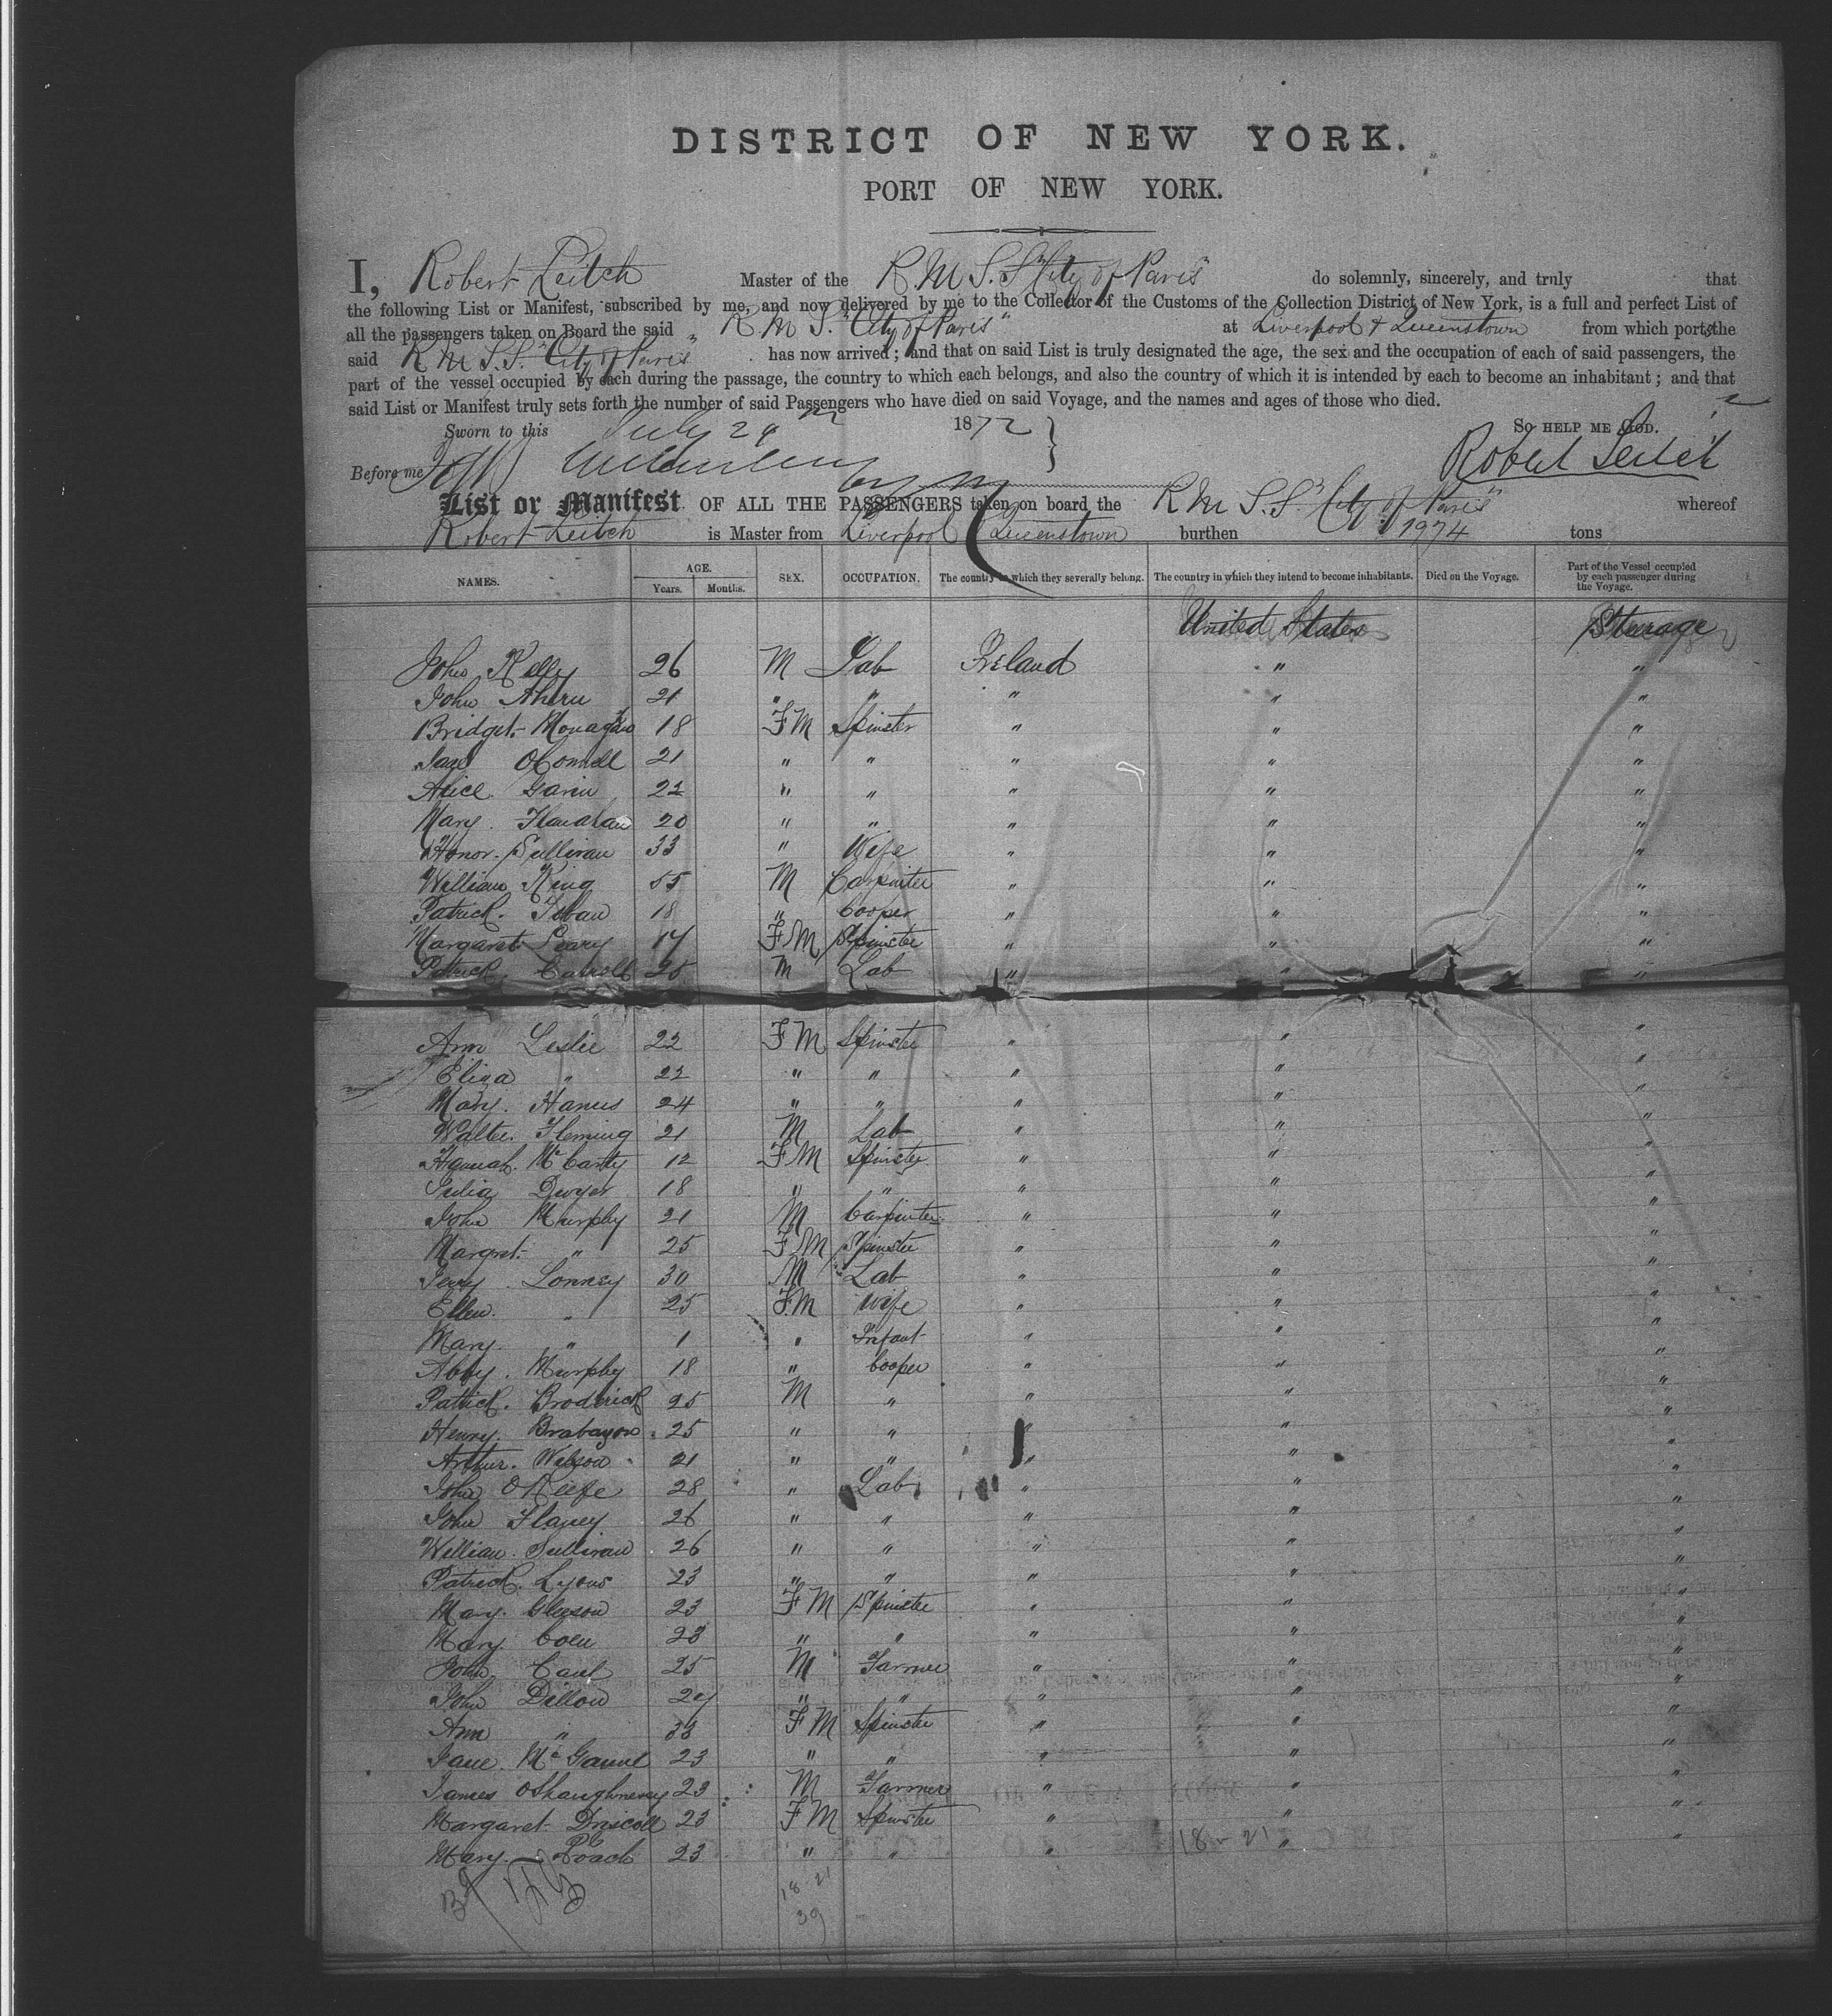 DISTRICT OF NEW YORK.
PORT OF NEW YORK.
I, Robert Leitch Master of the R.M.S.S. "City of Paris" do solemnly, sincerely, and truly that
the following List or Manifest, subscribed by me, and now delivered by me to the Collector of the Customs of the Collection District of New York, is a full and perfect List of
all the passengers taken on Board the said R M S. "City of Paris" at Liverpool & Queenstown from which ports the
said R M S.S. "City of Paris" has now arrived; and that on said List is truly designated the age, the sex and the occupation of each of said passengers, the
part of the vessel occupied by each during the passage, the country to which each belongs, and also the country of which it is intended by each to become an inhabitant; and that
said List or Manifest truly sets forth the number of said Passengers who have died on said Voyage, and the names and ages of those who died.
Sworn to this July 24 1872 So HELP ME GOD.
Before me Robert Leitch
List or Manifest OF ALL THE PASSENGERS taken on board the R M S.S. "City of Paris" whereof
Robert Leitch is Master from Liverpool Queenstown burthen 1974 tons
NAMES. AGE. Years. Months. SEX. OCCUPATION. The country to which they severally belong. The country in which they intend to become inhabitants. Died on the Voyage. Part of the Vessel occupied by each passenger during the Voyage.
United States Steerage
John Kelly 26 M Lab Ireland " "
John Ahern 21 " " " " "
Bridget Monaghan 18 F M Spinster " " "
Jane OConnell 21 " " " " "
Alice Gavin 22 " " " " "
Mary Flanahan 20 " " " " "
Honor Sullivan 33 " Wife " " "
William King 55 M Carpinter " " "
Patrick 18 " Cooper " " "
Margaret Leary 17 F M Spinster " " "
Patrick Carroll 25 M Lab " " "
Ann Leslie 22 F M Spinster " " "
Eliza " 22 " " " " "
Mary Hanus 24 " " " " "
Walter Fleming 21 M Lab " " "
Hannah McCarty 12 F M Spinster " " "
Julia Dwyer 18 " " " " "
John Murphy 21 M Carpinter " " "
Margret " 25 F M Spinster " " "
Jerry Lonney 30 M Lab " " "
Ellen " 25 F.M Wife " " "
Mary " 1 " Infant " " "
Abby Murphy 18 " Cooper " " "
Patrick Broderick 25 M " " " "
Henry Brabazon 25 " " " " "
Arthur Wilson 21 " " " " "
John OKeefe 28 " Lab " " "
John Flaney 26 " " " " "
William Sullivan 26 " " " " "
Patrick Lyons 23 " " " " "
Mary Gleeson 23 F M Spinster " " "
Mary Coen 23 " " " " "
John Caul 25 M Farmer " " "
John Dillon 24 " " " " "
Ann " 33 F M Spinster " " "
Jane 23 " " " " "
James OShaughnessy 23 M Farmer " " "
Margaret Driscoll 23 F M Spinster " " "
Mary Roach 23 " " " " "
18-21
18-21
39